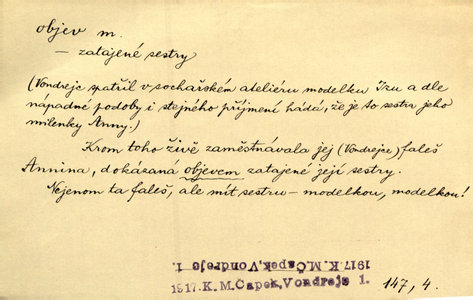 objev m.
— zatajené sestry
(Vondrejc spatřil v sochařském ateliéru modelku Izu a dle
nápadné podoby i stejného příjmení hádá, že je to sestra jeho
milenky Anny.)
Krom toho živě zaměstnávala jej (Vondrejce) faleš
Annina, dokázaná objevem zatajené její sestry.
Nejenom ta faleš, ale mít sestru — modelkou, modelkou!
1917.K.M.Čapek,Vondrejc 1.
1917.K.M.Čapek,Vondrejc 1.
147, 4.